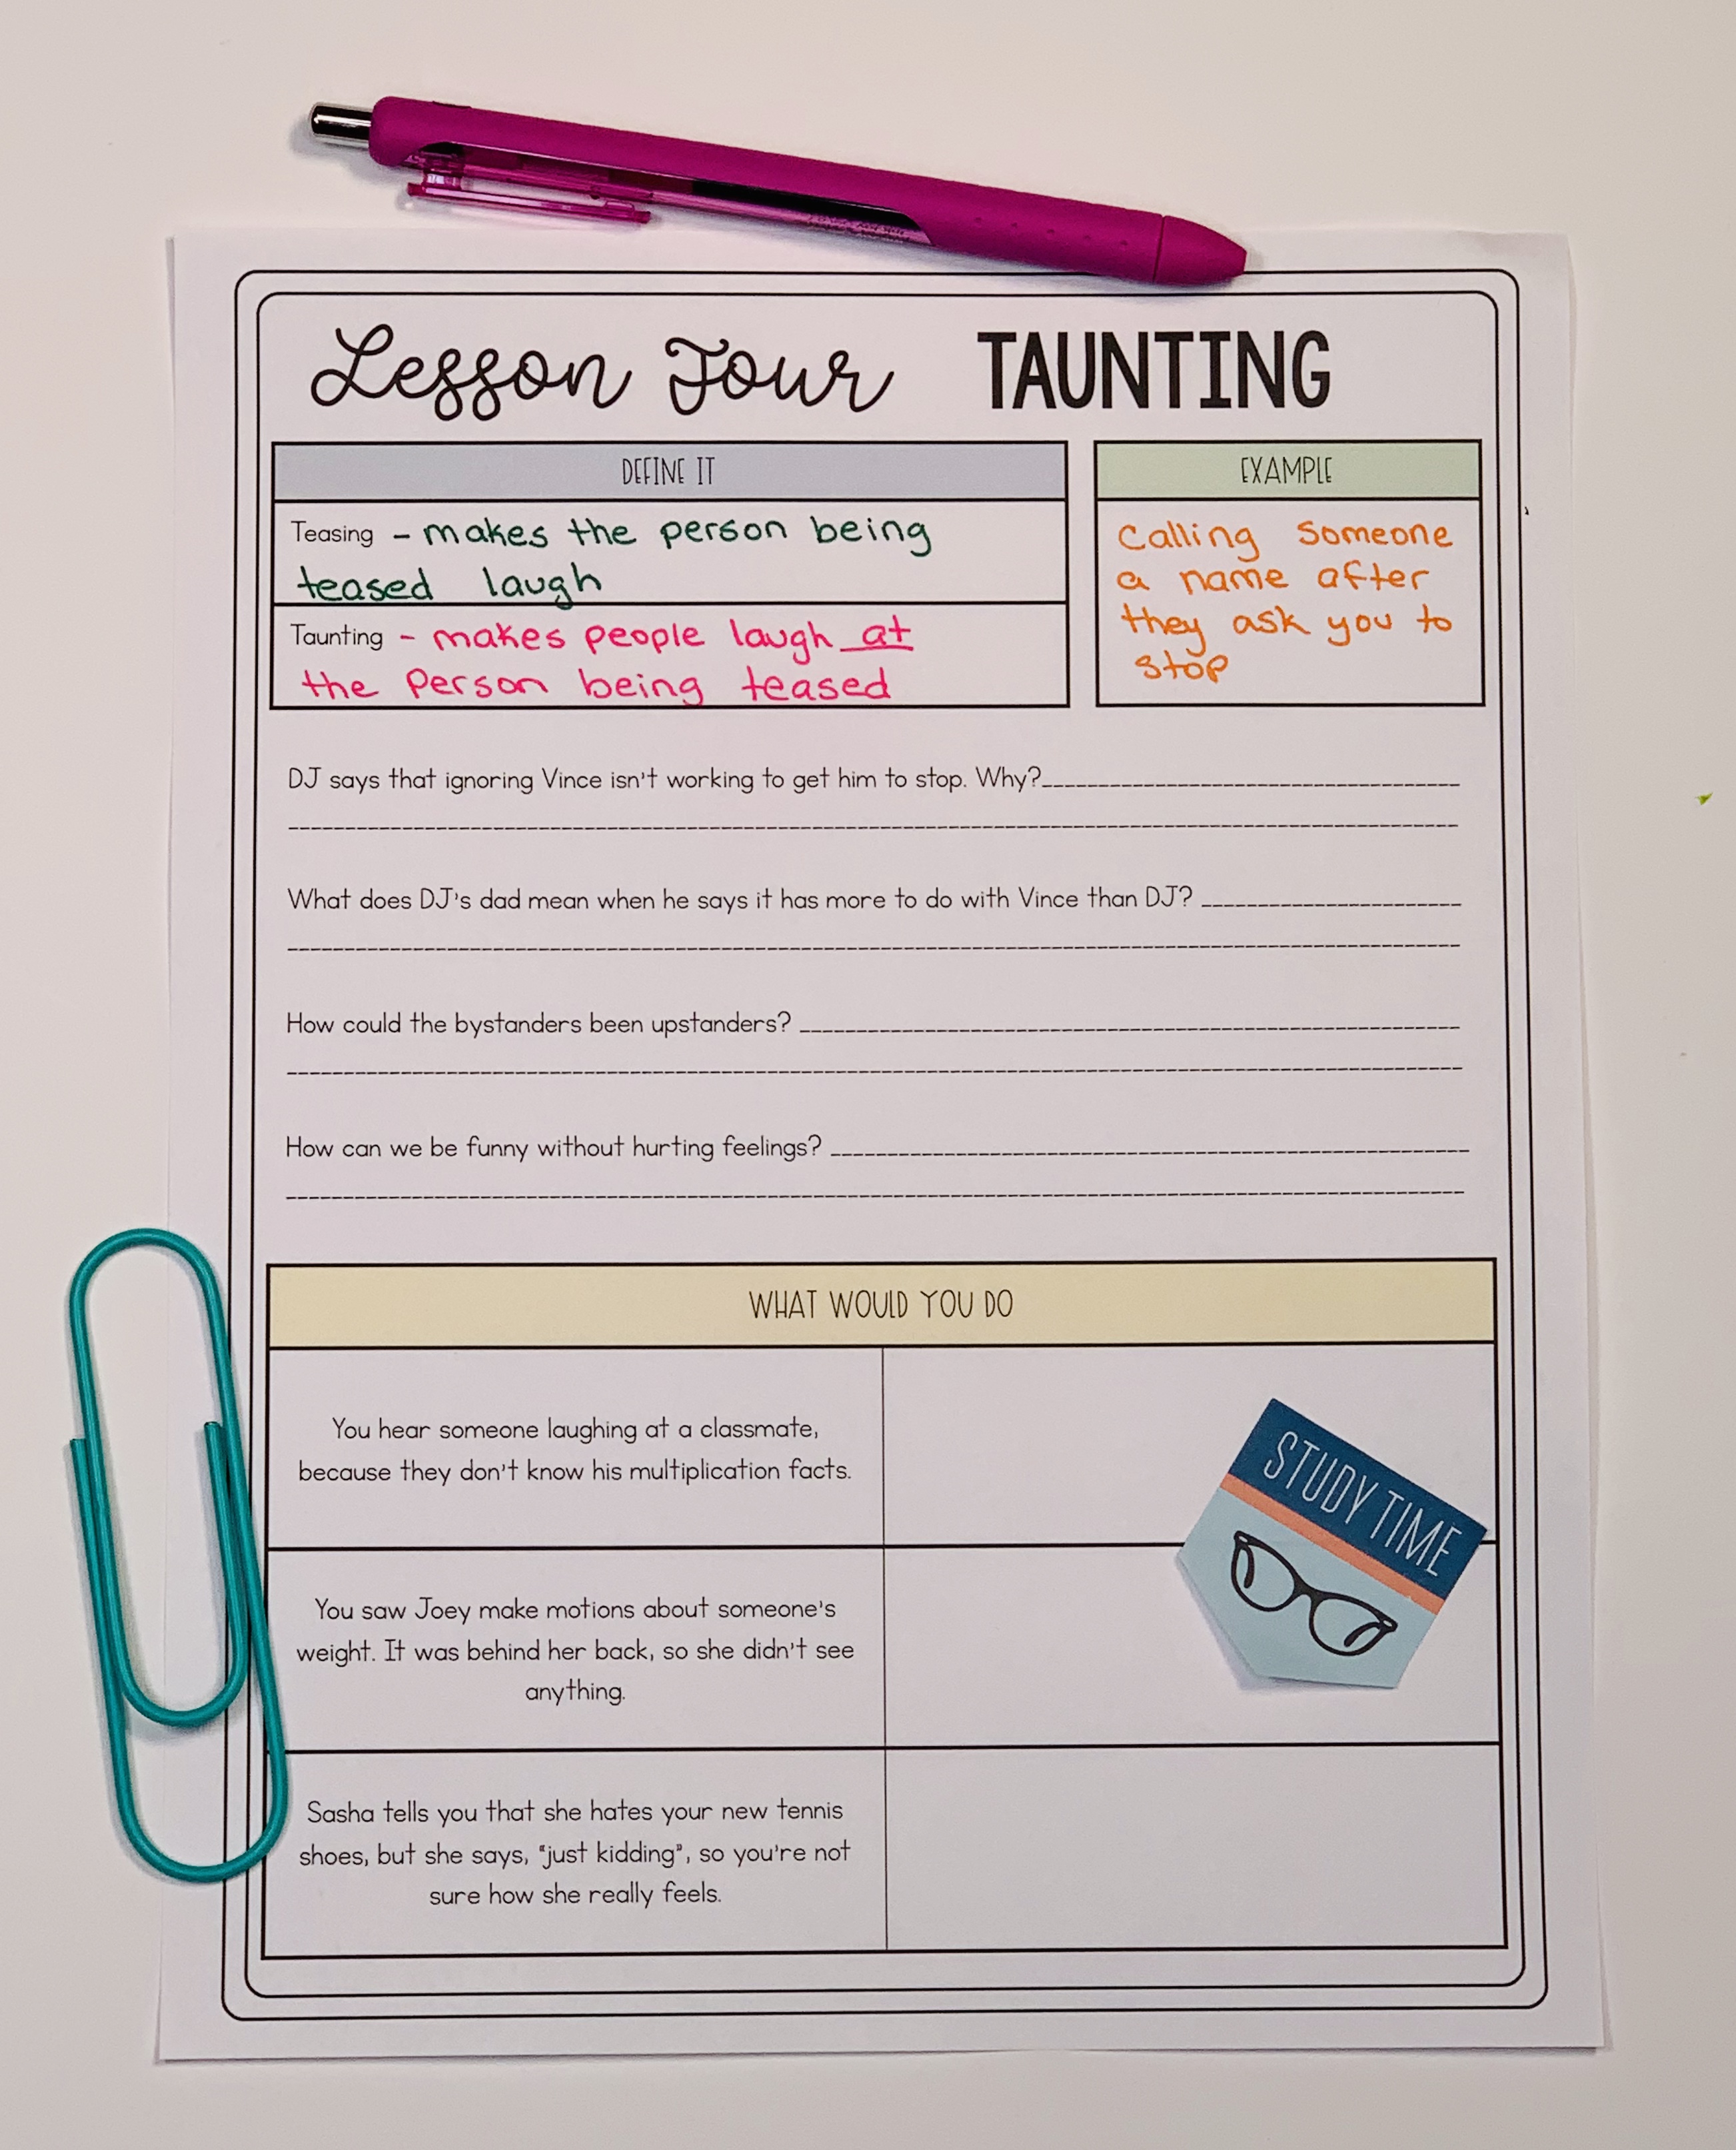 Lesson Four TAUNTING
DEFINE IT
Teasing - makes the person being
teased laugh
Taunting - makes people laugh at
the person being teased
EXAMPLE
Calling someone
a name after
they ask you to
stop
DJ says that ignoring Vince isn't working to get him to stop. Why?
What does DJ's dad mean when he says it has more to do with Vince than DJ?
How could the bystanders been upstanders?
How can we be funny without hurting feelings?
WHAT WOULD YOU DO
You hear someone laughing at a classmate,
because they don't know his multiplication facts.
STUDY TIME
You saw Joey make motions about someone's
weight. It was behind her back, so she didn't see
anything.
Sasha tells you that she hates your new tennis
shoes, but she says, "just kidding", so you're not
sure how she really feels.